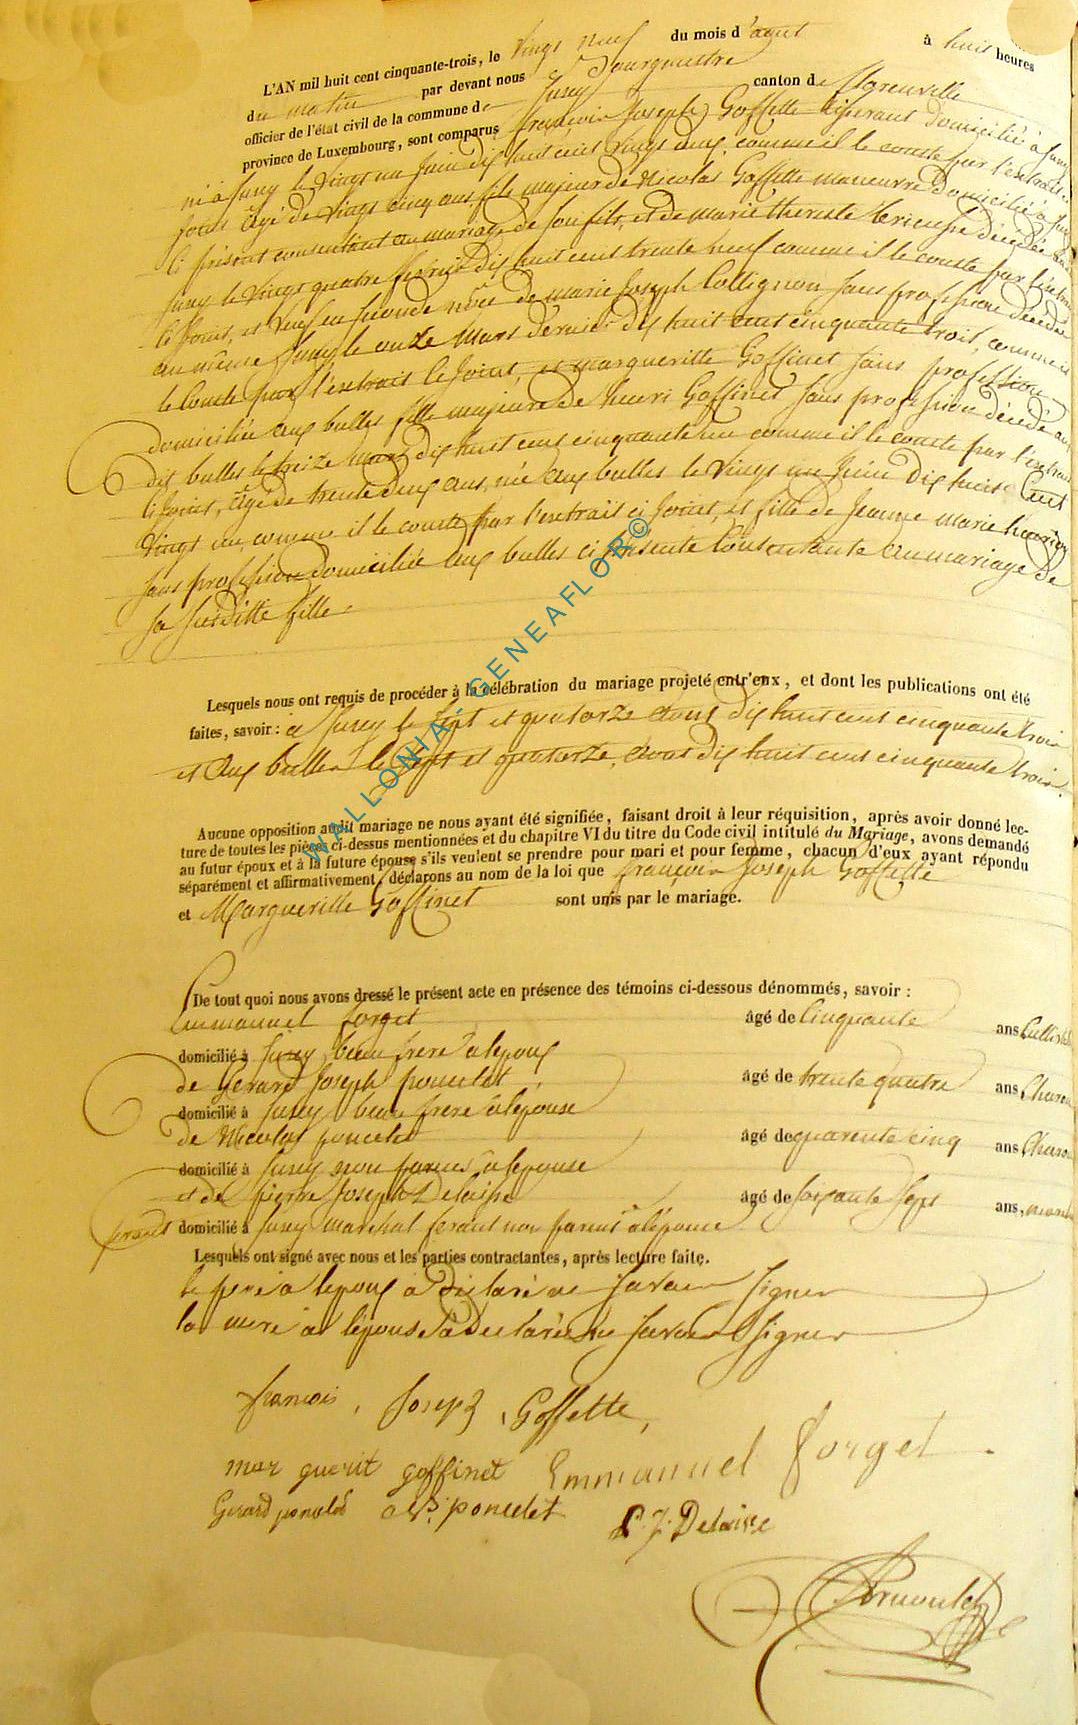 L'AN mil huit cent cinquante-trois, le vingt neuf du mois d'aout à huit heures
du matin par devant nous Bourgmestre
officier de l'état civil de la commune de Suxy canton de florenville
province de Luxembourg, sont comparus françois Joseph Goffette domicilié à Suxy
né à Suxy le vingt un Juin dix huit cent vingt comme il le conste par l'extrait
joint agé de vingt cinq ans fils majeur de Nicolas Goffette maneuvre domicilié à Suxy
ci présent consentant au mariage de son fils, et de marie therese décédée
Suxy le vingt quatre fevrier dix huit cent trente neuf comme il le conste par l'extrait
ci joint, et veuf en seconde nôce de marie Joseph Collignon sans profession décédée
au même Suxy le onze Mars dernier dix huit cent cinquante trois, comme il
le conste par l'extrait ci joint, et margueritte Goffinet sans profession
domiciliée aux bulles fille majeure de henri Goffinet sans profession décédé aux
dit bulles le treize mars dix huit cent cinquante un comme il le conste par l'extrait
ci joint, agé de trente deux ans, née aux bulles le vingt un Juin dix huit Cent
vingt un, comme il le conste par l'extrait ci joint, et fille de Jeanne marie henrion
sans profession domiciliée aux bulles ci présente Consentante au mariage de
sa susditte fille
Lesquels nous ont requis de procéder à la célébration du mariage projeté entr'eux, et dont les publications ont été
faites, savoir : à Suxy le sept et quatorze aout dix huit cent cinquante trois
et aux bulles le sept et quatorze, aout dix huit cent cinquante trois.
Aucune opposition audit mariage ne nous ayant été signifiée, faisant droit à leur réquisition, après avoir donné lec-
ture de toutes les pièces ci-dessus mentionnées et du chapitre VI du titre du Code civil intitulé du Mariage, avons demandé
au futur époux et à la future épouse s'ils veulent se prendre pour mari et pour femme, chacun d'eux ayant répondu
séparément et affirmativement, déclarons au nom de la loi que françois Joseph Goffette
et Margueritte Goffinet sont unis par le mariage.
De tout quoi nous avons dressé le présent acte en présence des témoins ci-dessous dénommés, savoir :
Emmanuel forget âgé de Cinquante ans
domicilié à Suxy beau frere à lepoux
de Gerard Joseph poncelet âgé de trente quatre ans
domicilié à Suxy beau frere à lepouse
de Nicolas poncelet âgé de quarente cinq ans
domicilié à Suxy non parent à lepouse
et de pierre Joseph Delaisse âgé de soixante sept ans,
domicilié à Suxy marchal ferant non parent à lépouse
Lesquels ont signé avec nous et les parties contractantes, après lecture faite.
le pere à lepoux à déclaré ne savoir signer
la mere à lépouse a declarée ne savoir signer
francois, Josepz, Goffette,
mar guerit goffinet Emmanuel forget
Gerard poncelet poncelet P. J. Delaisse
WALLONIA-GENEAFLOR©